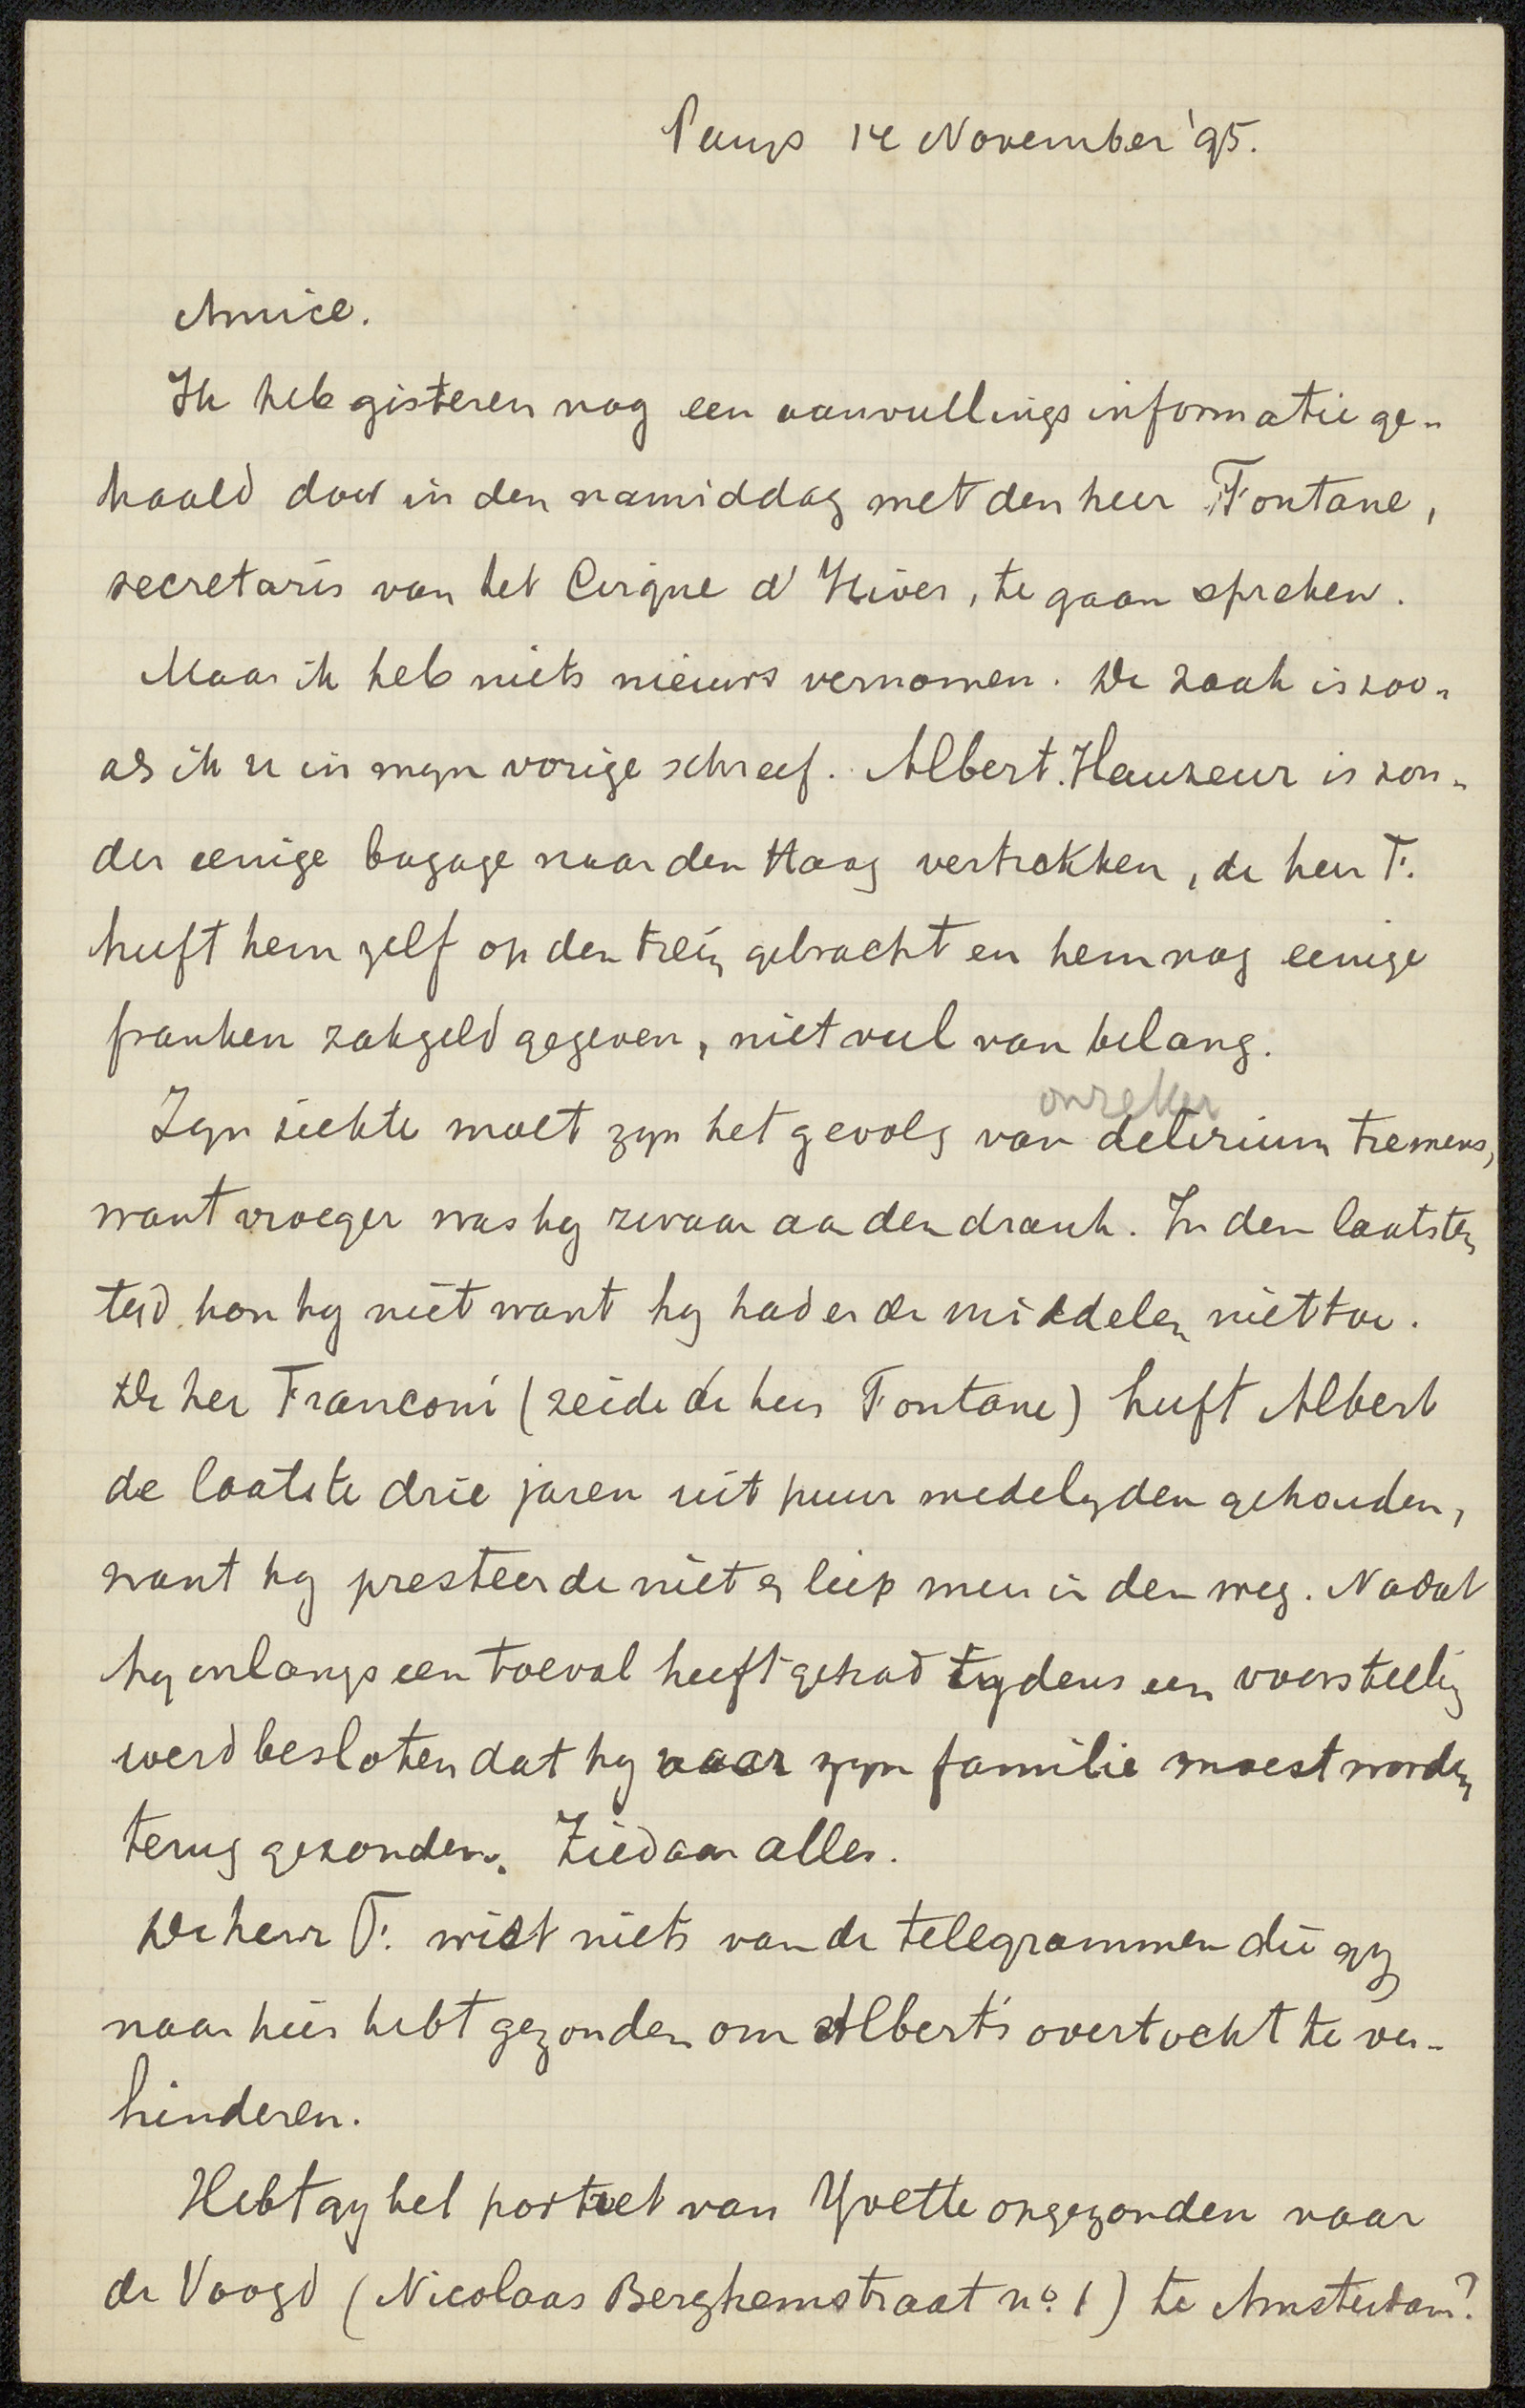 Parijs 14 November '95.
Amice.
Ik heb gisteren nog een aanvullings informatie ge-
haald door in den namiddag met den heer Fontane,
secretaris van het Cirque d'Hiver, te gaan spreken.
Maar ik heb niets nieuws vernomen. De zaak is zoo-
als ik u in mijn vorige schreef. Albert Hauzeur is zon-
der eenige bagage naar den Haag vertrokken, de heer F.
heeft hem zelf op den trein gebracht en hem nog eenige
franken zakgeld gegeven, niet veel van belang.
onzeker
Zijn ziekte moet zijn het gevolg van delirium tremens,
want vroeger was hij zwaar aan den drank. In den laatsten
tijd kon hij niet want hij had er de middelen niet toe.
De heer Franconi (zeide de heer Fontane) heeft Albert
de laatste drie jaren uit puur medelijden gehouden,
want hij presteerde niet en liep men in den weg. Nadat
hij onlangs een toeval heeft gehad tijdens een voorstelling
werd besloten dat hij naar zijn familie moest worden
terug gezonden. Ziedaar alles.
De heer F. wist niets van de telegrammen die gij
naar hier hebt gezonden om Albert's overtocht te ver-
hinderen.
Hebt gij het portret van Yvette opgezonden naar
de Voogd (Nicolaas Berghemstraat no. 1) te Amsterdam?